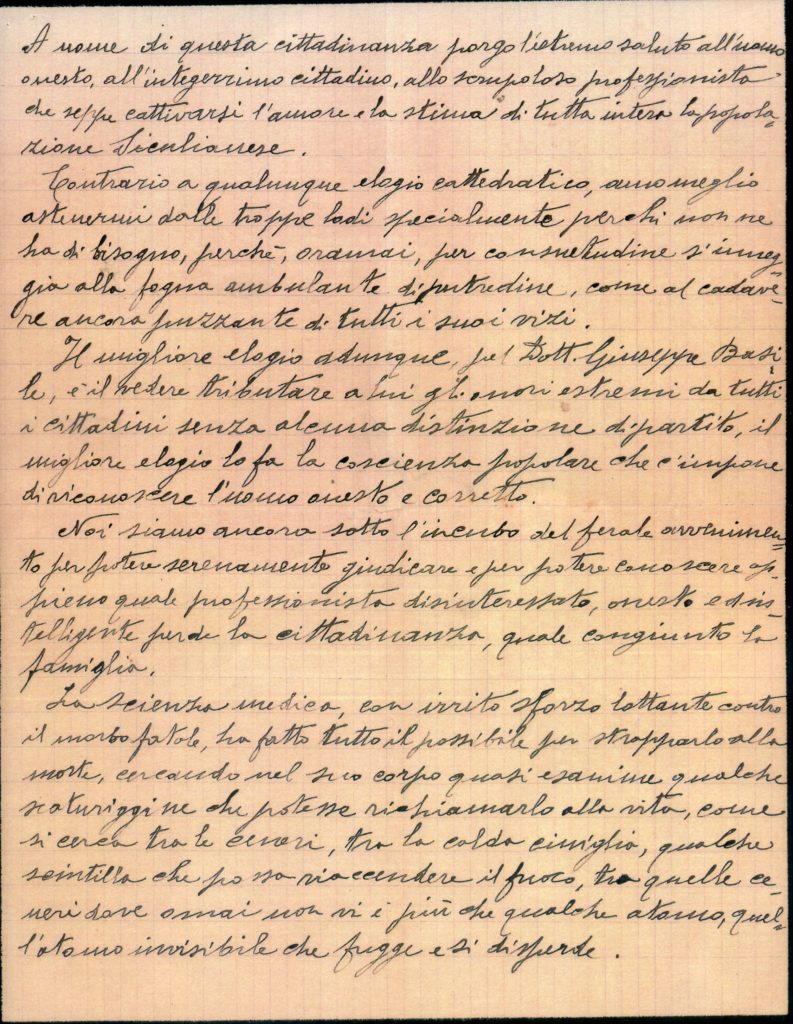 A nome di questa cittadinanza porgo l'estremo saluto all'uomo
onesto, all'integerrimo cittadino, allo scrupoloso professionista
che seppe cattivarsi l'amore e la stima di tutta intera la popola-
zione Siculianese.
Contrario a qualunque elogio cattedratico, amo meglio
astenermi dalle troppe lodi specialmente perchè non ne
ha di bisogno, perchè, oramai, per consuetudine s'inneg-
gia alla fogna ambulante di putredine, come al cadave-
re ancora puzzante di tutti i suoi vizi.
Il migliore elogio adunque, pel Dott. Giuseppe Basi-
le, è il vedere tributare a lui gli onori estremi da tutti
i cittadini senza alcuna distinzione di partito, il
migliore elogio lo fa la coscienza popolare che c'impone
di riconoscere l'uomo onesto e corretto.
Noi siamo ancora sotto l'incubo del ferale avvenimen-
to per potere serenamente giudicare e per potere conoscere ap-
pieno quale professionista disinteressato, onesto ed in-
telligente perde la cittadinanza, quale congiunto la
famiglia.
La scienza medica, con irrito sforzo lottante contro
il morbo fatale, ha fatto tutto il possibile per strapparlo alla
morte, cercando nel suo corpo quasi esanime qualche
scaturiggine che potesse richiamarlo alla vita, come
si cerca tra le ceneri, tra la calda ciniglia, qualche
scintilla che possa riaccendere il fuoco, tra quelle ce-
neri dove omai non vi è più che qualche atomo, quel-
l'atomo invisibile che fugge e si disperde.